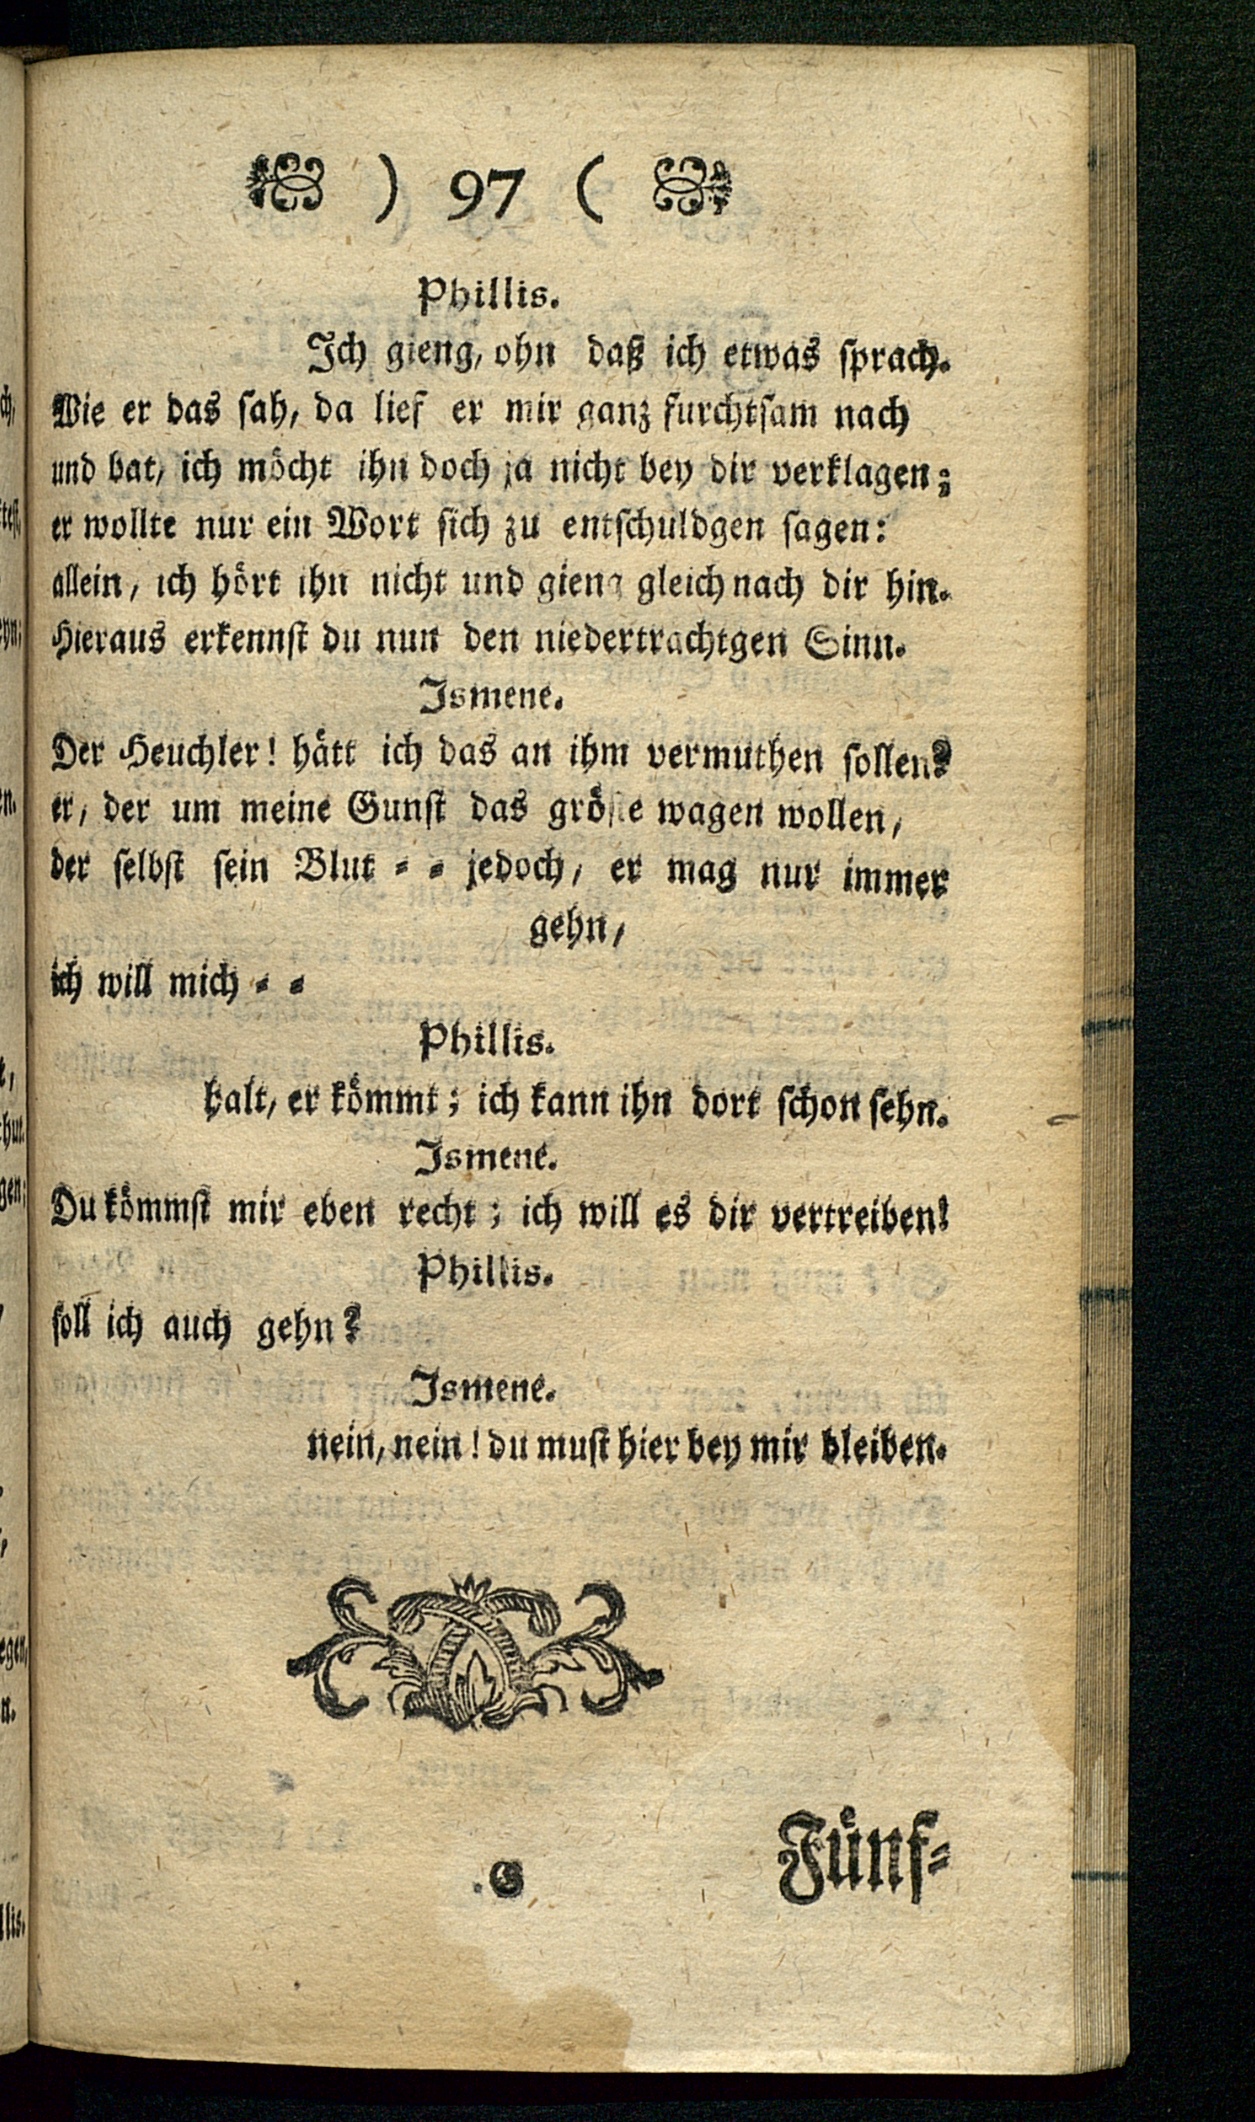 ) 97 (
Phillis.
Ich gieng, ohn daß ich etwas sprach.
Wie er das sah, da lief er mir ganz furchtsam nach
und bat, ich möcht ihn doch ja nicht bey dir verklagen;
er wollte nur ein Wort sich zu entschuldgen sagen:
allein, ich hört ihn nicht und gieng gleich nach dir hin.
Hieraus erkennst du nun den niedertrachtgen Sinn.
Ismene.
Der Heuchler! hätt ich das an ihm vermuthen sollen?
er, der um meine Gunst das gröste wagen wollen,
der selbst sein Blut = = jedoch, er mag nur immer
gehn,
ich will mich = =
Phillis.
halt, er kömmt; ich kann ihn dort schon sehn.
Ismene.
Du kömmst mir eben recht; ich will es dir vertreiben!
Phillis.
soll ich auch gehn?
Ismene.
nein, nein! du must hier bey mir bleiben.
G
Fünf=